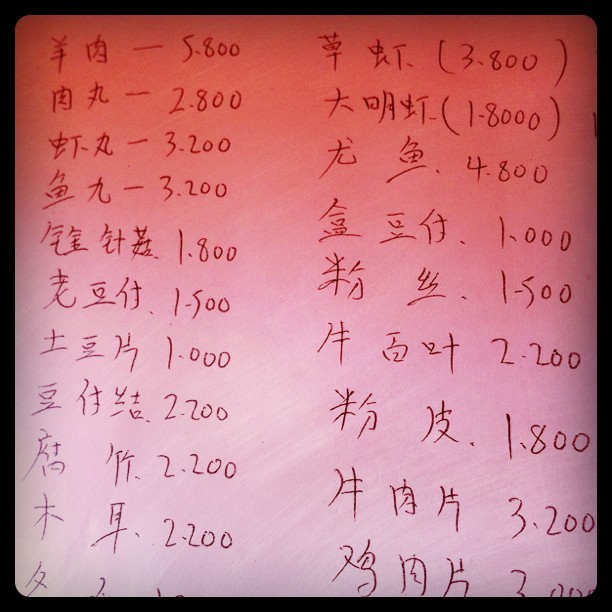 羊肉 — 5.800
肉丸 — 2.800
虾丸 — 3.200
鱼九 — 3.200
针菇 1.800
老豆付. 1.500
土豆片 1.000
豆付结. 2.200
腐竹. 2.200
木耳. 2.200
草虾. (3.800)
大明虾. (1.8000)
尤鱼. 4.800
盒豆付. 1.000
粉丝. 1.500
牛百叶 2.200
粉皮. 1.800
牛肉片 3.200
鸡肉片